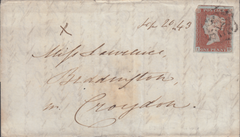 x
Miss Lawrence,
Beddington,
nr Croydon.